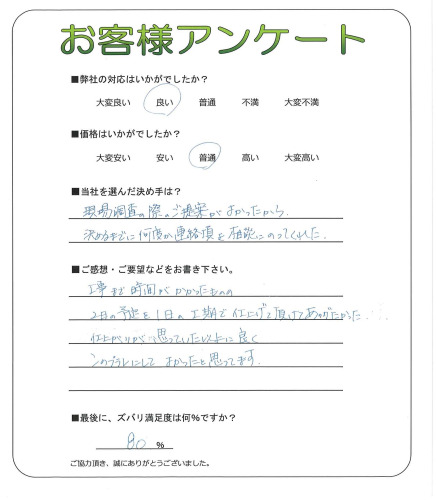 お客様アンケート
■弊社の対応はいかがでしたか？
大変良い 良い 普通 不満 大変不満
■価格はいかがでしたか？
大変安い 安い 普通 高い 大変高い
■当社を選んだ決め手は？
現場調査の際のご提案がよかったから.
決めるまでに何度か連絡頂き相談にのってくれた.
■ご感想・ご要望などをお書き下さい。
工事まで時間がかかったものの
2日の予定を1日の工期で仕上げて頂けてありがたかった
仕上がりが思っていた以上に良く
にして よかったと思ってます.
■最後に、ズバリ満足度は何%ですか？
80 %
ご協力頂き、誠にありがとうございました。